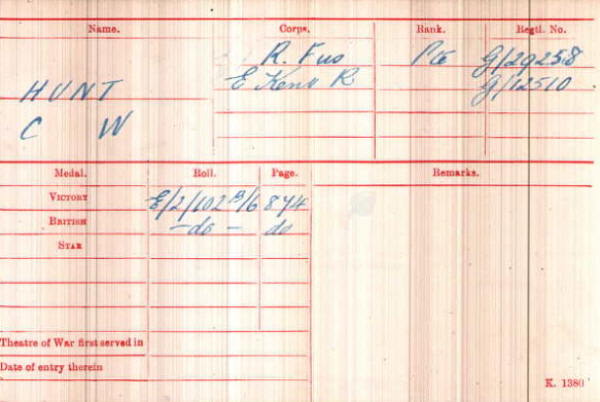 Name. Corps. Rank. Regtl. No.
R. Fus Pte G/29258
HUNT E Kent R G/12510
C W
Medal. Roll. Page. Remarks.
VICTORY E/2/102 B/6 874
BRITISH -do- do
STAR
Theatre of War first served in
Date of entry therein
K. 1380